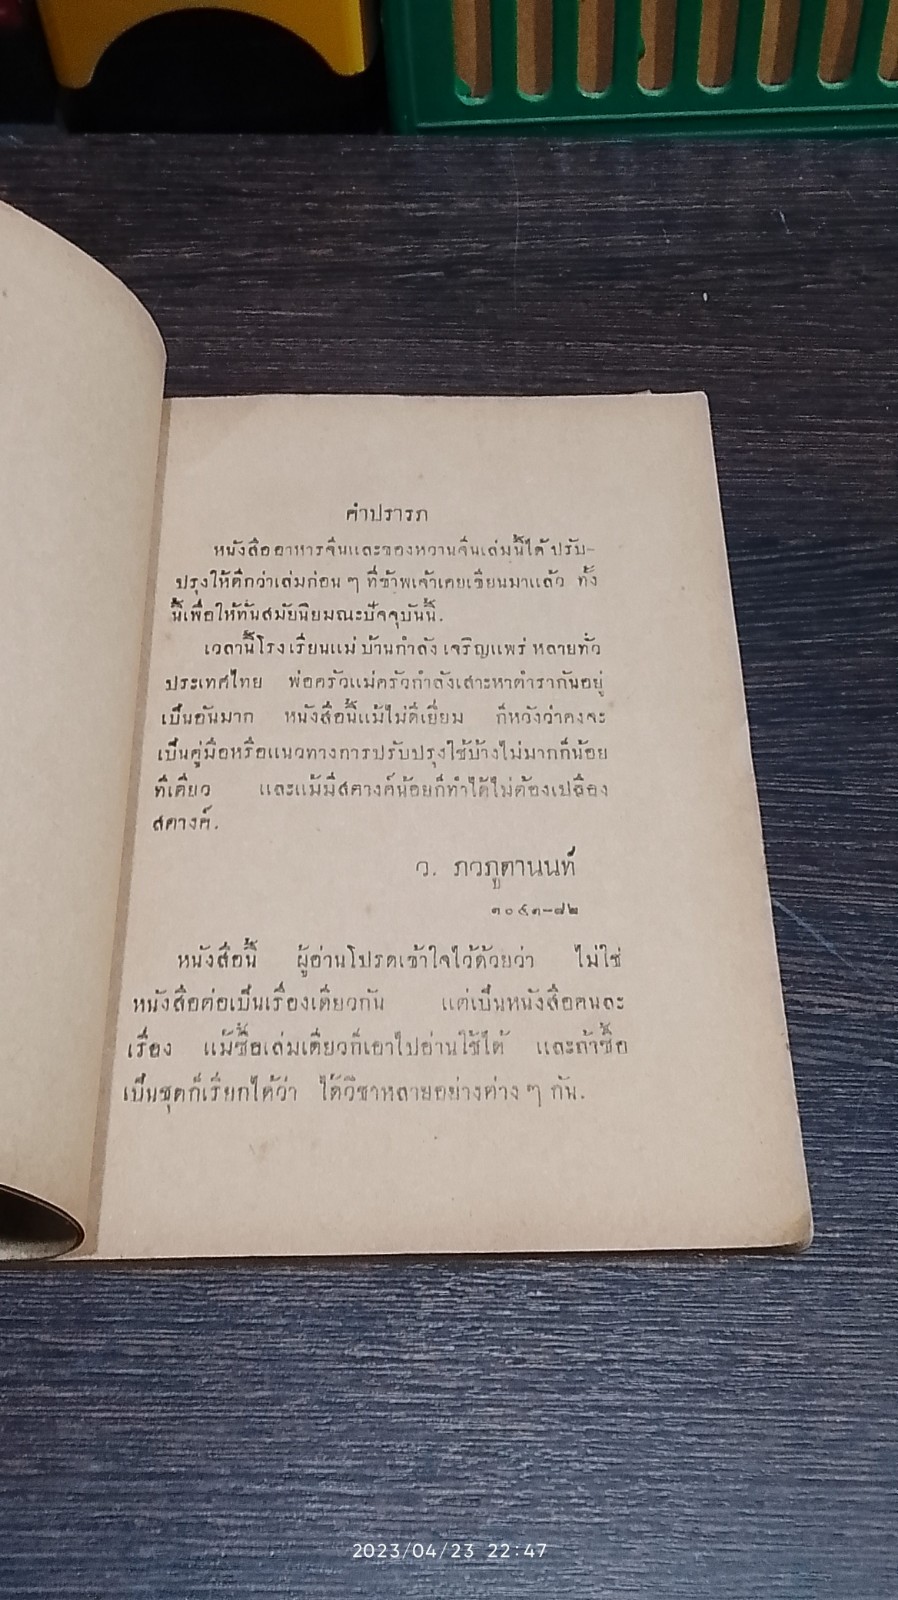 คำปรารภ
หนังสืออาหารจีนและของหวานจีนเล่มนี้ได้ ปรับ-
ปรุงให้ดีกว่าเล่มก่อน ๆ ที่ข้าพเจ้าเคยเขียนมาแล้ว ทั้ง
นี้เพื่อให้ทันสมัยนิยมณะปัจจุบันนี้.
เวลานี้โรงเรียนแม่บ้านกำลังเจริญแพร่หลายทั่ว
ประเทศไทย พ่อครัวแม่ครัวกำลังเสาะหาตำรากันอยู่
เป็นอันมาก หนังสือนี้แม้ไม่ดีเยี่ยม ก็หวังว่าคงจะ
เป็นคู่มือหรือแนวทางการปรับปรุงใช้บ้างไม่มากก็น้อย
ทีเดียว และแม้มีสตางค์น้อยก็ทำได้ไม่ต้องเปลือง
สตางค์.
ว. ภวภูตานนท์
หนังสือนี้ ผู้อ่านโปรดเข้าใจไว้ด้วยว่า ไม่ใช่
หนังสือต่อเป็นเรื่องเดียวกัน แต่เป็นหนังสือคนละ
เรื่อง แม้ซื้อเล่มเดียวก็เอาไปอ่านใช้ได้ และถ้าซื้อ
เป็นชุดก็เรียกได้ว่า ได้วิชาหลายอย่างต่าง ๆ กัน.
2023/04/23 22:47